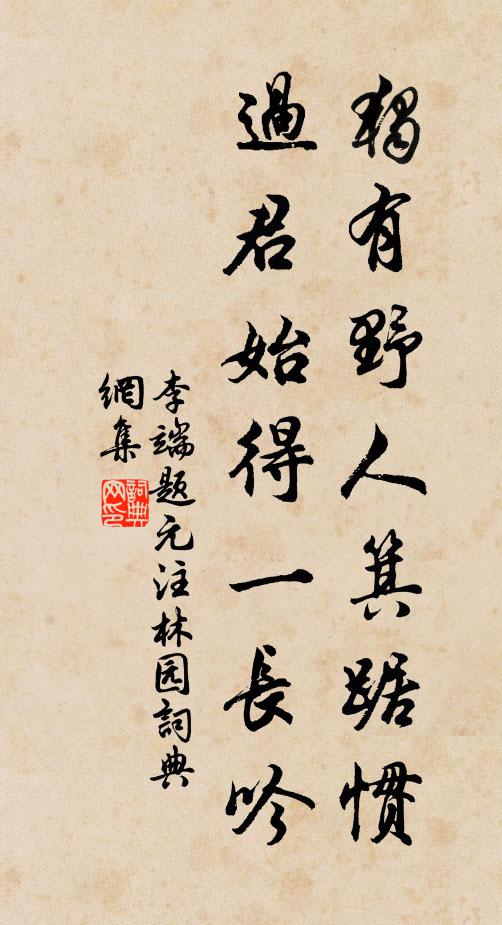 獨有野人箕踞慣
過君始得一長吟
李端题元注林园詞典
網集
詞典
网印